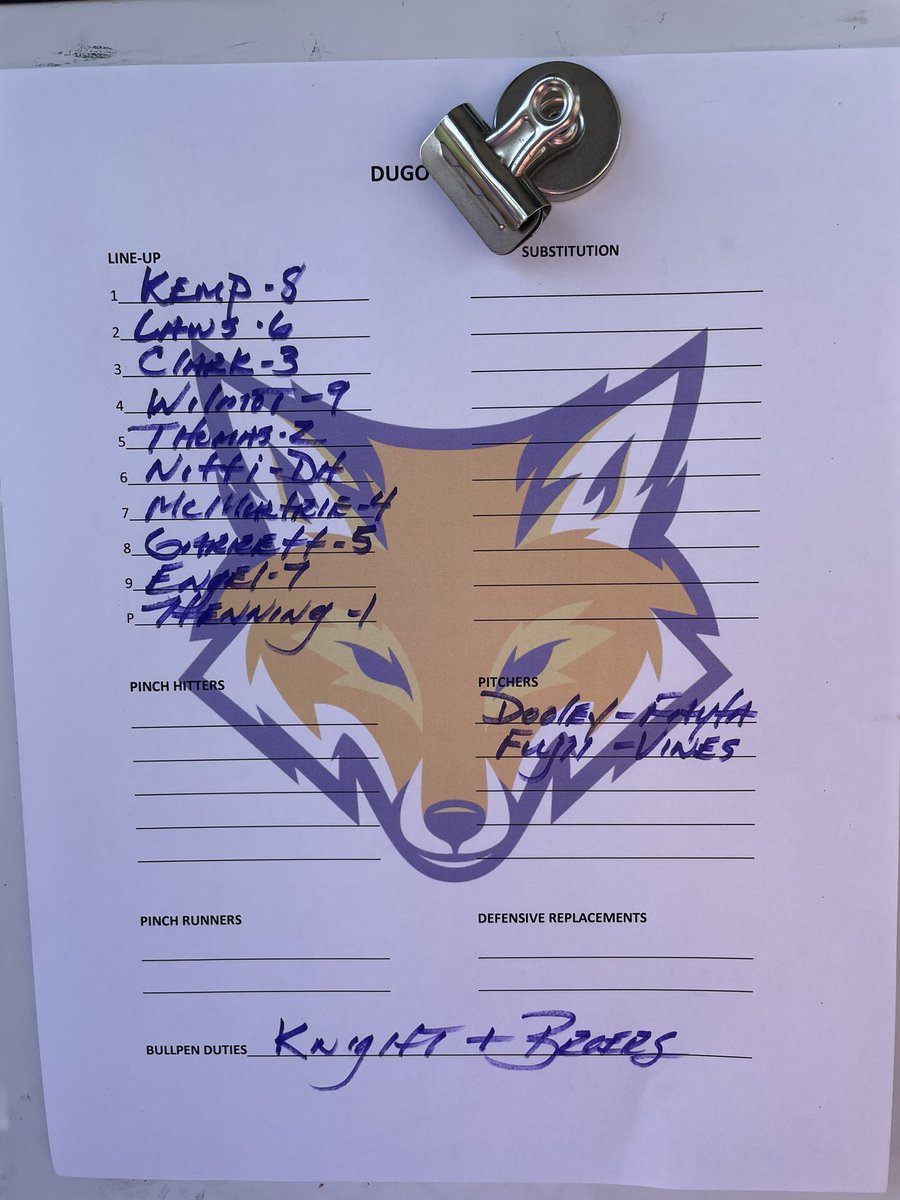 DUGO
LINE-UP
1 KEMP - 8
2 LAWS - 6
3 CLARK - 3
4 Wilmot - 9
5 THOMAS - 2
6 Nitti - DH
7 McMurtrie - 4
8 GARRETT - 5
9 ENGEL - 7
P HENNING - 1
SUBSTITUTION
PINCH HITTERS
PITCHERS
DOOLEY -
FUJII - VINES
PINCH RUNNERS
DEFENSIVE REPLACEMENTS
BULLPEN DUTIES KNIGHT +